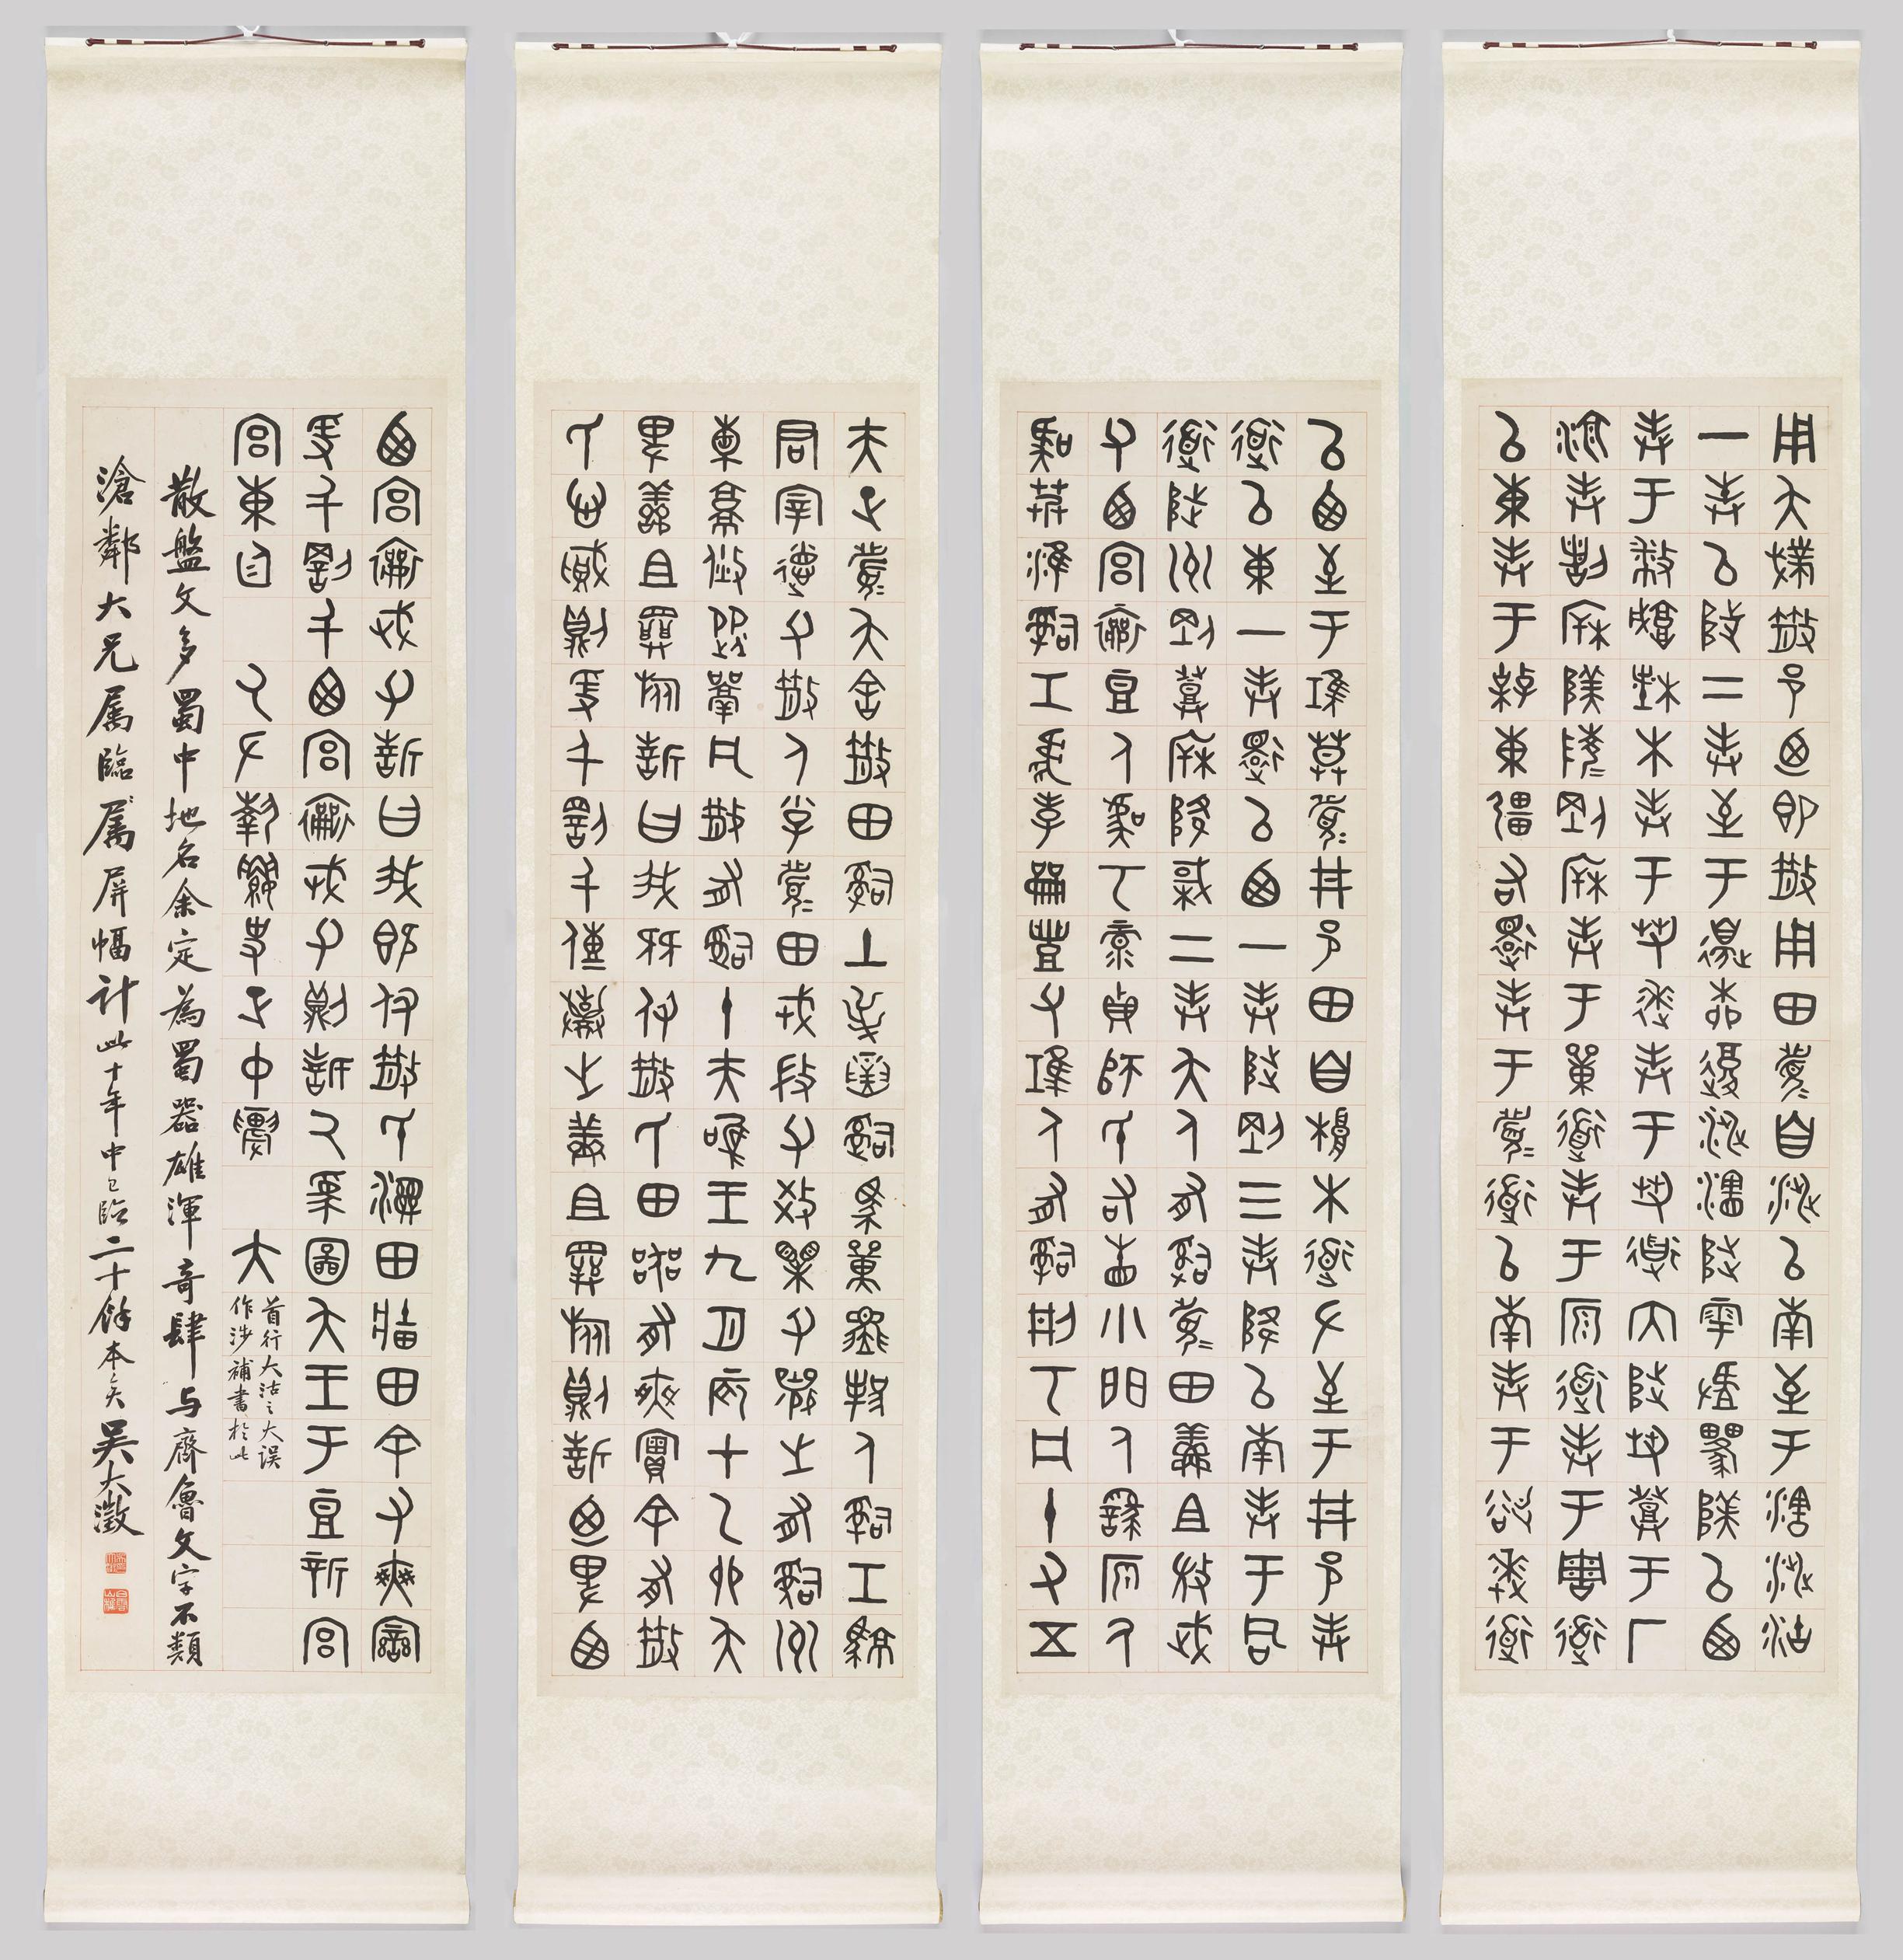 用夨撲散邑乃即散用田眉自瀗以南至于涉沽
一奉以陟二奉至于邊柳復涉瀗陟雩陜以西
奉于播城楮木奉于芻逨奉于芻道內陟芻登于厂
湶奉諸𣏟陜陵剛𣏟奉于單道奉于原道奉于周道
以東奉于東彊右還奉于眉道以南奉于逨道
以西至于𨾊莫眉井邑田自根木道左至于井邑奉
道以東一奉還以西一奉陟剛三奉降以南奉于同
道陟州剛登𣏟降棫二奉夨人有司眉田鮮且微武
父西宮襄豆人虞丂彔貞師氏右眚小門人繇原人
虞艿淮司工虎孝龠豐父𨾊人有司刑丂凡十又五
夫正眉夨舍散田司土屰司馬單𨾊邦人司工駷
君宰德父散人小子眉田戎微父效父襄之有司橐州
就焂從凡散有司十夫唯王九月辰才乙卯夨
卑鮮且旅誓曰我既付散氏田器有爽實余有散
氏心賊則爰千罰千傳棄之鮮且旅則誓乃卑西
西宮襄武父誓曰我既付散氏濕田牆田余又爽變
爰千罰千西宮襄武父則誓厥為圖夨王于豆新宮
宮東廷 厥左執要史正中農 大
首行大沽之大误
作涉補書於此
散盤文多蜀中地名余定為蜀器雄渾奇肆与齊魯文字不類
滄鄰大兄属臨屬屏幅計此十年中已臨二十餘本矣吳大澂